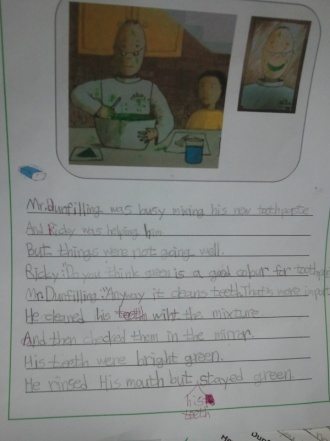 Mr. Dunfilling was busy mixing his new toothpaste
And Ricky was helping him
But things were not going well.
Ricky: Do you think green is a good colour for toothpaste
Mr. Dunfilling: Anyway it cleans teeth. That is more import
He cleaned his teeth wiht the mixture
And then checked them in the mirror
His teeth were bright green.
He rinsed His mouth but stayed green.
his
teeth